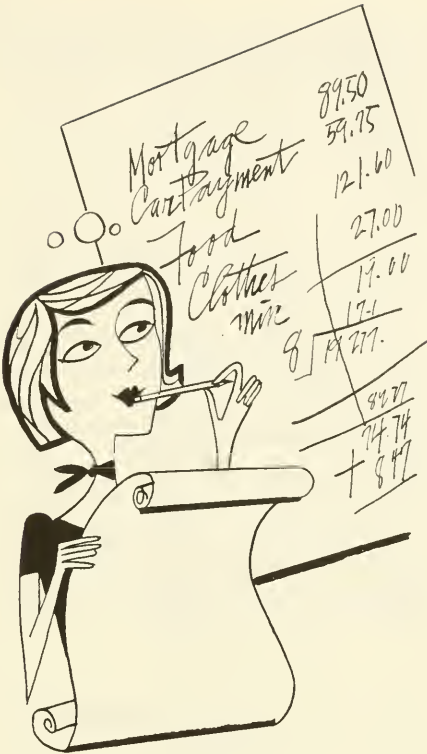 Mortgage 89.50
Car Payment 59.75
Food 121.60
Clothes 27.00
Misc 19.00
8
74.74
+ 8.47